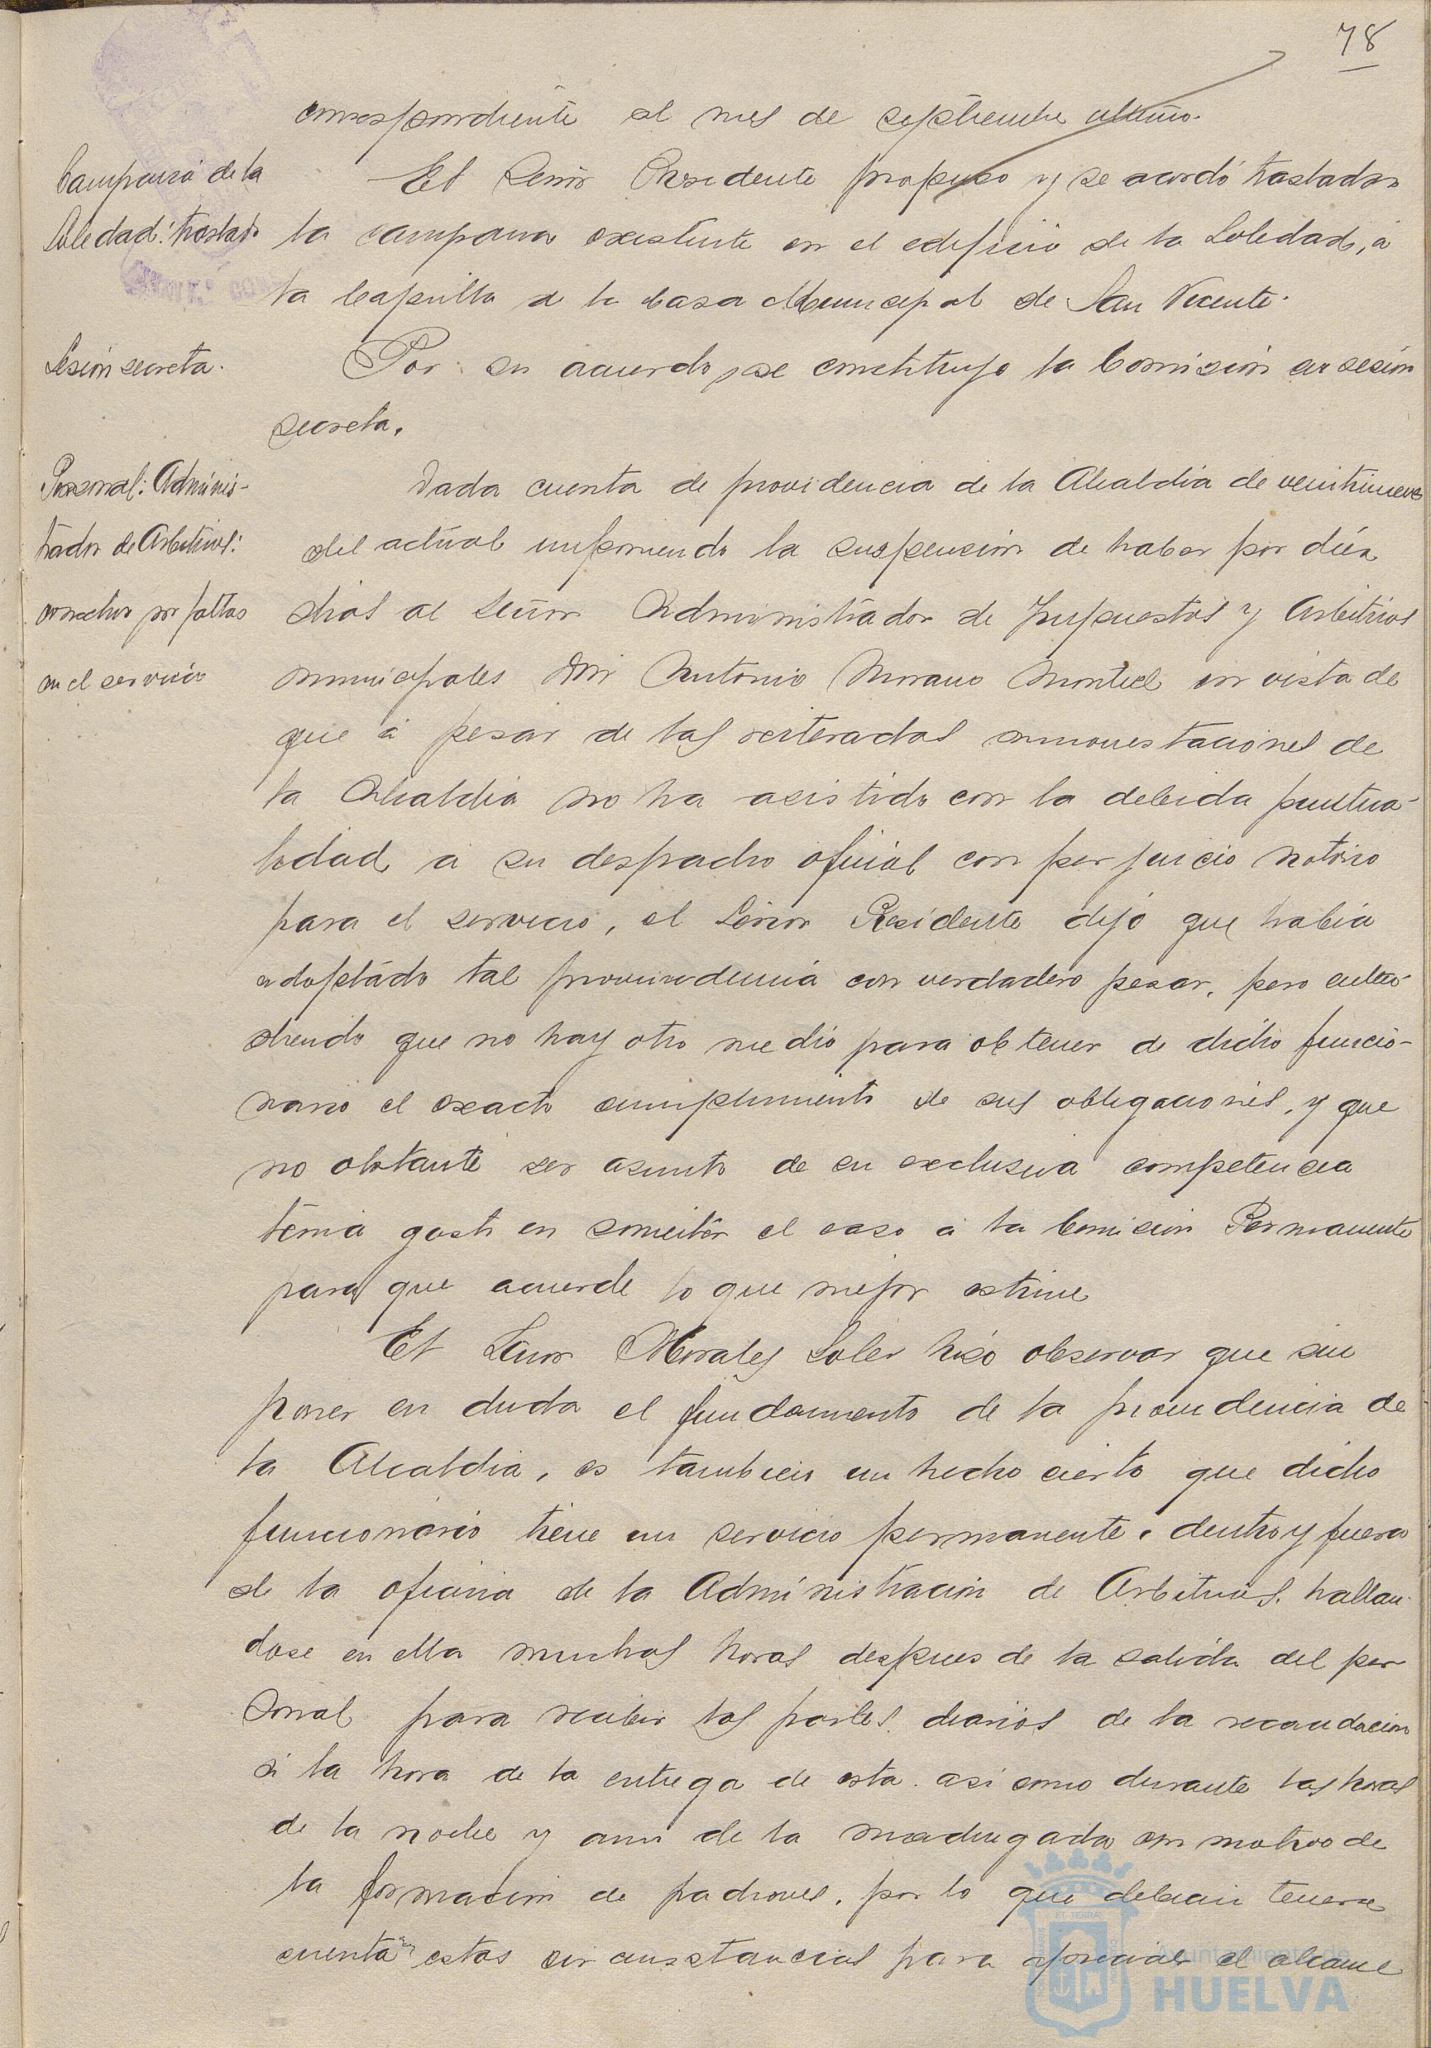 78
correspondiente al mes de septiembre último.
Campana de la
Soledad: traslado
El Señor Presidente propuso y se acordó trasladar
la campana existente en el edificio de la Soledad, á
la Capilla de la Casa Municipal de San Vicente.
Sesión secreta.
Por su acuerdo, se constituyo la Comisión en sesión
secreta.
Personal: Adminis-
trador de Arbitrios:
correctivo por faltas
en el servicio
Dada cuenta de providencia de la Alcaldia de veintinueve
del actual imponiendo la suspensión de haber por diez
dias al Señor Administrador de Impuestos y Arbitrios
municipales Don Antonio Morano Montiel en vista de
que á pesar de las reiteradas amonestaciones de
la Alcaldia no ha asistido con la debida puntua-
lidad á su despacho oficial con perjuicio notorio
para el servicio, el Señor Presidente dijó que habia
adoptado tal providencia con verdadero pesar, pero enten-
diendo que no hay otro medio para obtener de dicho funcio-
nario el exacto cumplimiento de sus obligaciones, y que
no obstante ser asunto de su exclusiva competencia
tenia gusto en someter el caso á la Comisión Permanente
para que acuerde lo que mejor estime
El Señor Morales Soler hizo observar que sin
poner en duda el fundamento de la providencia de
la Alcaldia, es tambien un hecho cierto que dicho
funcionario tiene un servicio permanente dentro y fuera
de la oficina de la Administración de Arbitrios, hallan-
dose en ella muchas horas despues de la salida del per-
sonal para recibir los partes diarios de la recaudación
á la hora de la entrega de esta. asi como durante las horas
de la noche y aun de la madrugada con motivo de
la formación de padrones, por lo que debian tenerse
en cuenta estas circunstancias para apreciar el alcance
Ayuntamiento de
HUELVA